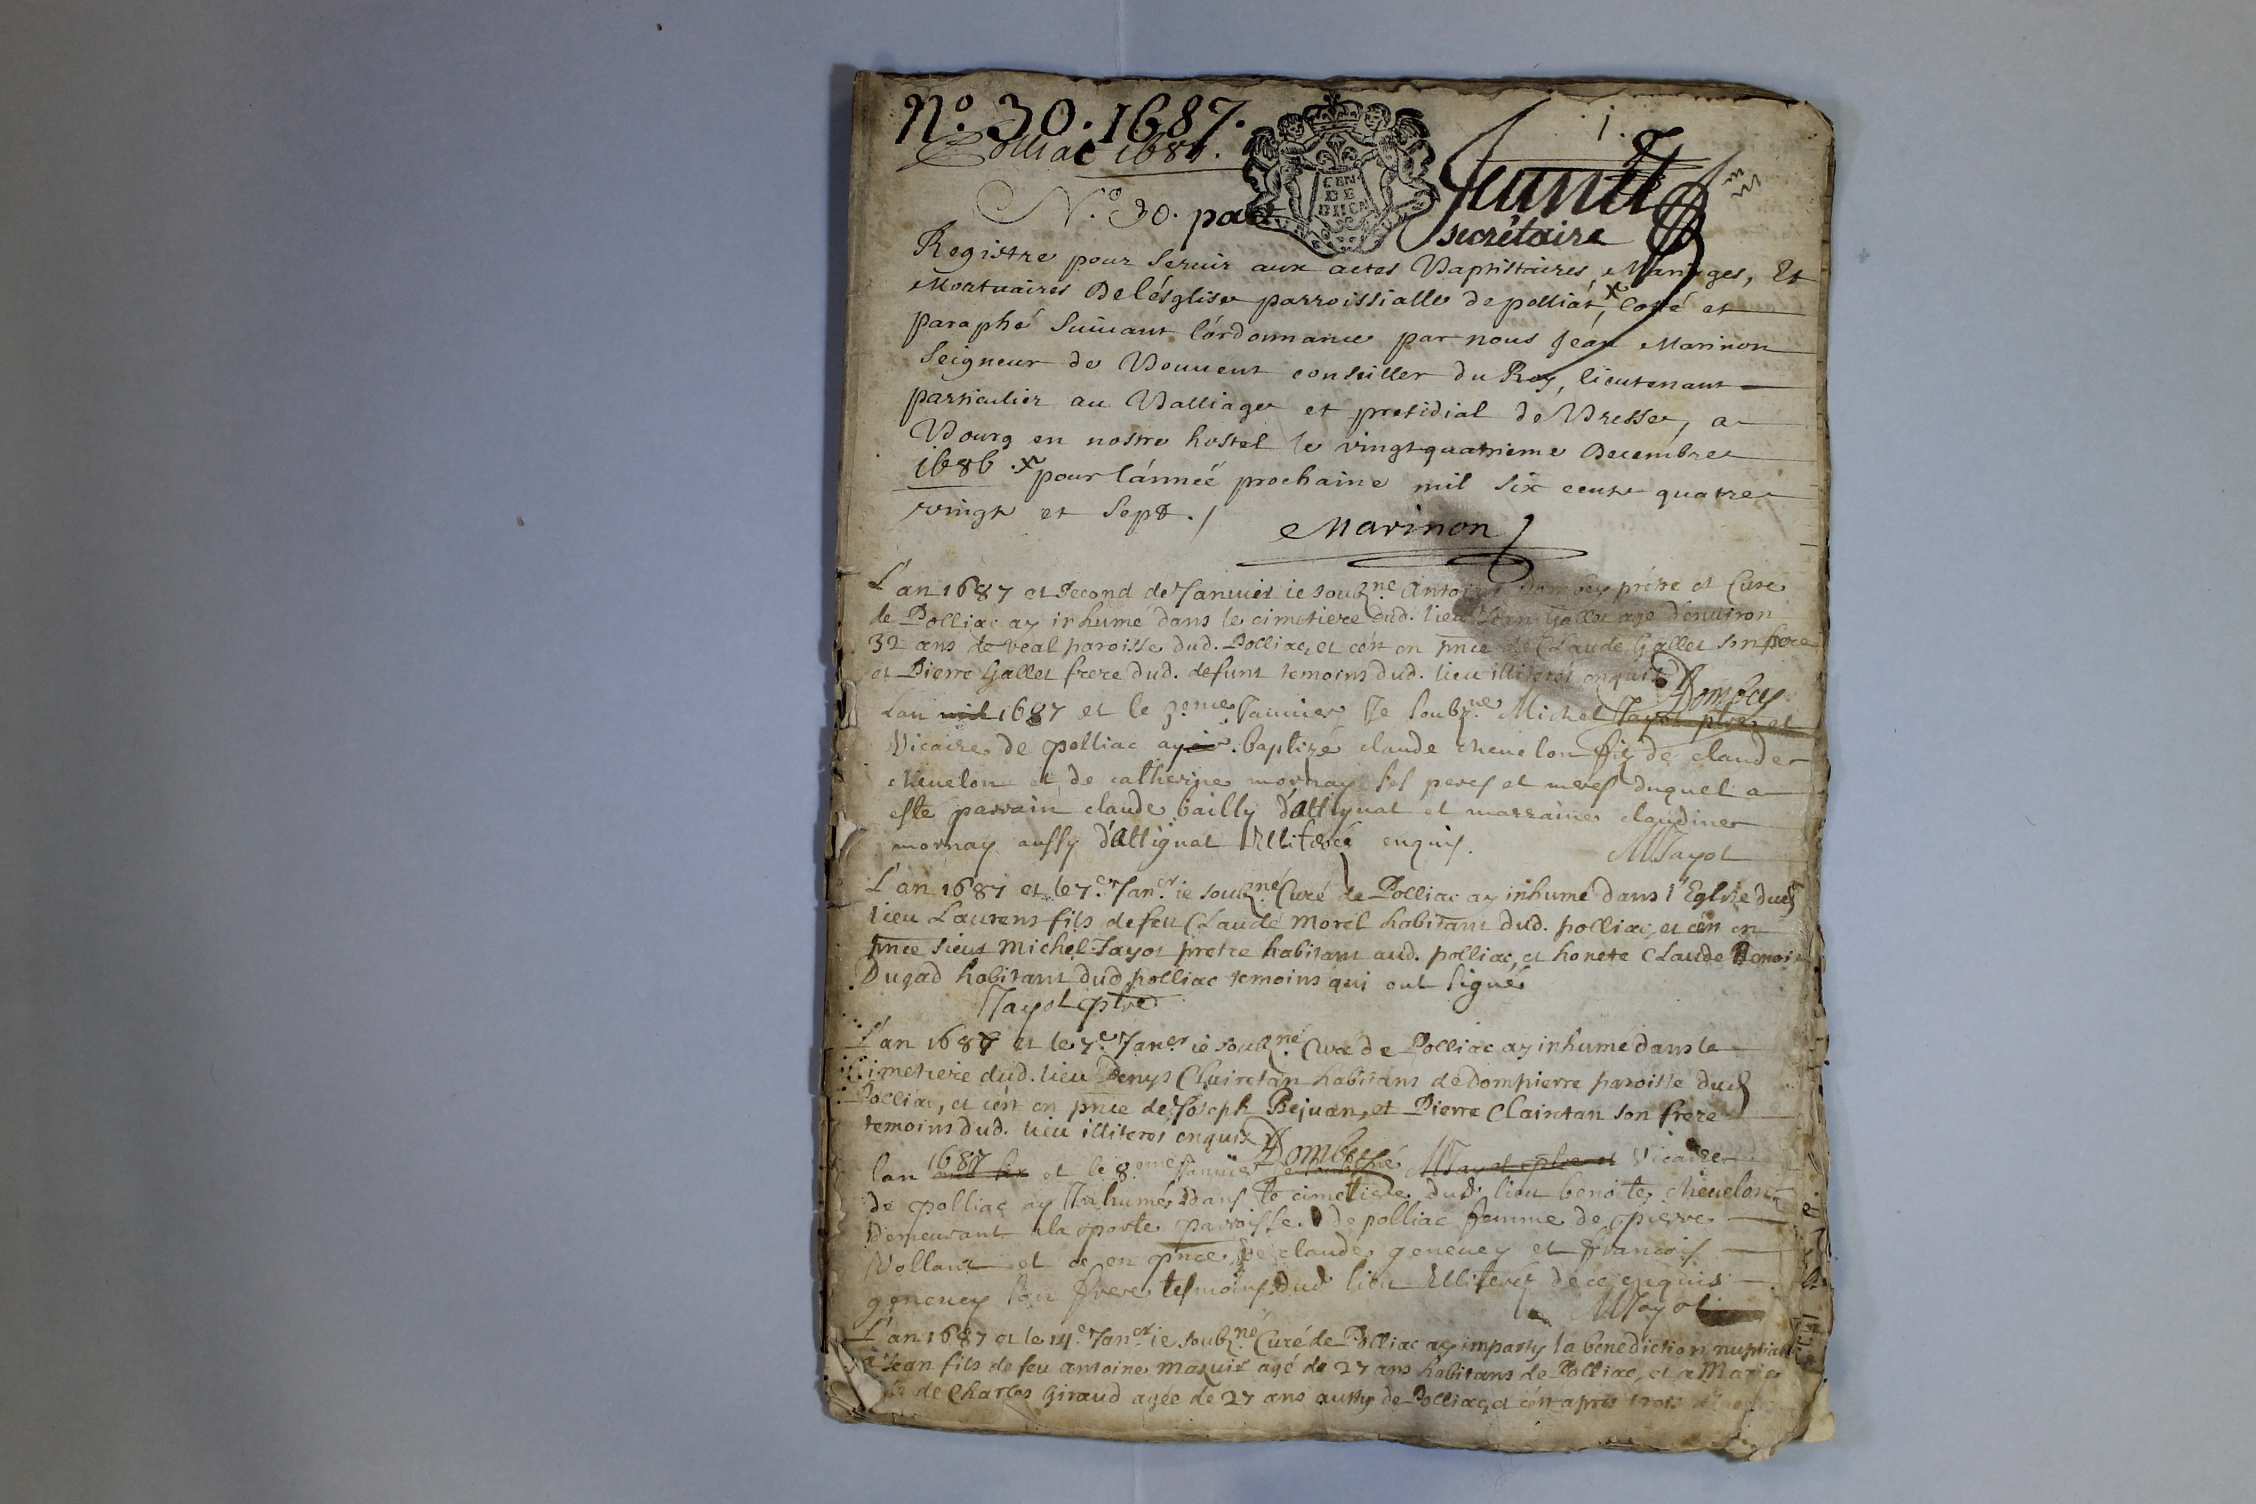 N.º 30. 1687.
Polliac 1687.
1.
N.º 30. pa
GEN
DE
secrétaire
Registre pour seruir aux actes Baptistaires, Mariages, Et
Mortuaires De l'ésglise parroissialle de polliat, x Cotté et
paraphé suiuant l'ordonnance par nous Jéan Marinon
Seigneur de Bouuent conseiller du Roy, lieutenant
particulier au Balliage et presidial de Bresse, a
Bourg en nostre hostel le vingtquatrieme Decémbre
1686. x pour l'année prochaine mil six cents quatre
vingt et sept. /
Marinon
L'an 1687 et second de Januier ie soubz.né Antoine Dombey prétre et Curé
de Polliac ay inhumé dans le cimetiere dud. lieu Jean Gallet agé d'enuiron
32 ans de veal paroisse dud. Polliac, et c'ét en pnce de Claude Gallet son frere
et Pierre Gallet frere dud. defunt temoins dud. lieu illiterés enquis
Dombey
Lan mil 1687 et le 3.eme Januier Je soubz.ne Michel Tayot ptre et
Vicaire de polliac ay baptizé claude cheuelon fiz de claude
cheuelon et de catherine mornay ses peres et meres duquel a
esté parrain claude bailly d'attignat et marraine claudine
mornay aussy d'attignat Illiterés enquis.
MTayot
L'an 1687 et le 7.e Jan.er ie soubz.né Curé de Polliac ay inhumé dans l'Eglise dud
lieu Laurens fils de feu Claude Morel habitant dud. polliac, et c'ét en
pnce sieur Michel Tayot pretre habitant aud. polliac, et honete Claude Benoit
Dugad habitant dud. polliac temoins qui ont signé
Tayot ptre
L'an 1687 et le 7.e Jan.er ie soubz.né Curé de Polliac ay inhumé dans le
Cimetiere dud. lieu Denys Clairetan habitant de Dompierre paroisse dud
Polliac, et c'ét en pnce de Joseph Bejuan, et Pierre Claintan son frere
temoins dud. lieu illiteres enquis
Dombey
lan 1687 et le 8.eme Januier Je soubsné MTayot ptre et Vicaire
de polliac ay Inhumé dans le cimetiere dud. lieu benoite cheuelon
Demeurant a la porte parroisse de polliac femme de pierre
Vollant et ce en pnce de claude geneuey et francois
geneuey son frere tesmoins dud lieu Illiteréz de ce enquis
MTayot
L'an 1687 et le 14.e Jan.er ie soubz.né Curé de Polliac ay imparty la benediction nuptiale
à Jean fils de feu antoine Maquis agé de 27 ans habitans de Polliac, et a Marie
de Charles Giraud agée de 27 ans aussy de Polliac, et c'ét apres trois